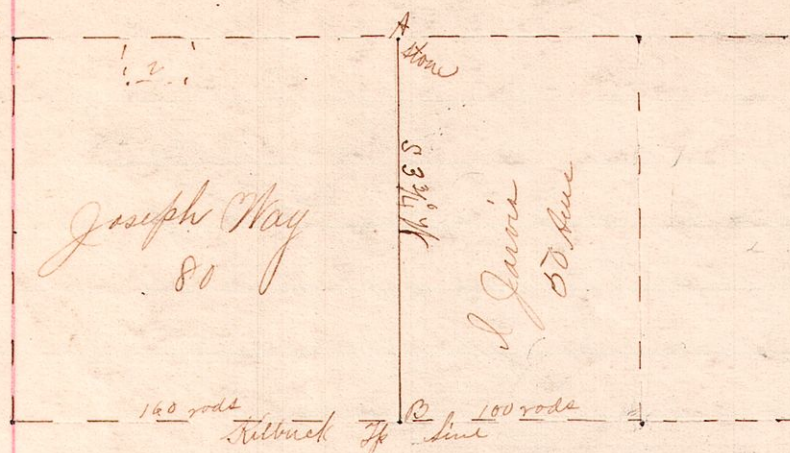 A
stone
2
Joseph Way
80
I Jarvis
50 Acres
160 rods
B
100 rods
Kilbuck Tp line